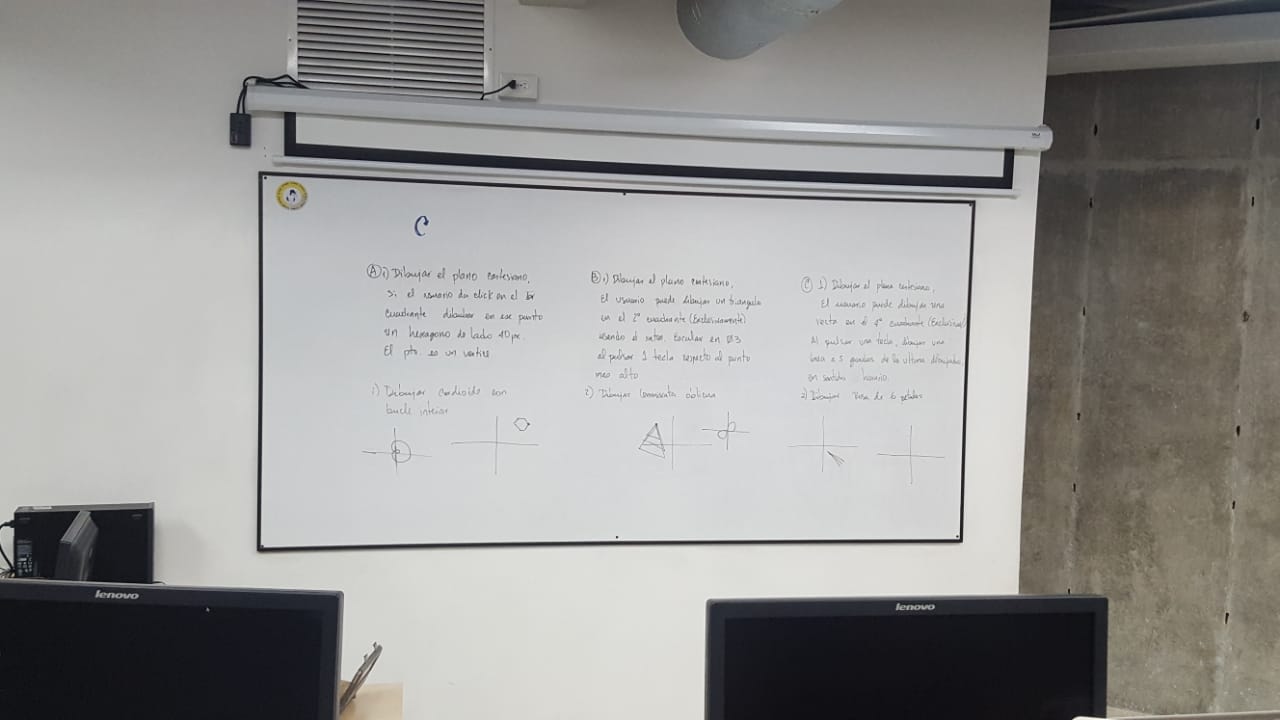 C
A 1) Dibujar el plano cartesiano,
Si el usuario da click en el 1er
cuadrante dibujar en ese punto
un hexagono de lado 40 px.
El pto. es un vertice
2) Dibujar Cardioide con
bucle interior
B 1) Dibujar el plano cartesiano,
El usuario puede dibujar un triangulo
en el 2º cuadrante (Exclusivamente)
usando el raton. Escalar en 0.3
al pulsar 1 tecla respecto al punto
mas alto
2) Dibujar oblicua
C 1) Dibujar el plano cartesiano,
El usuario puede dibujar una
recta en el 4º cuadrante (Exclusiv
Al pulsar una tecla, dibujar una
linea a 5 grados de la ultima dibujada,
en sentido horario.
2) Dibujar Rosa de 6 petalos
lenovo
lenovo